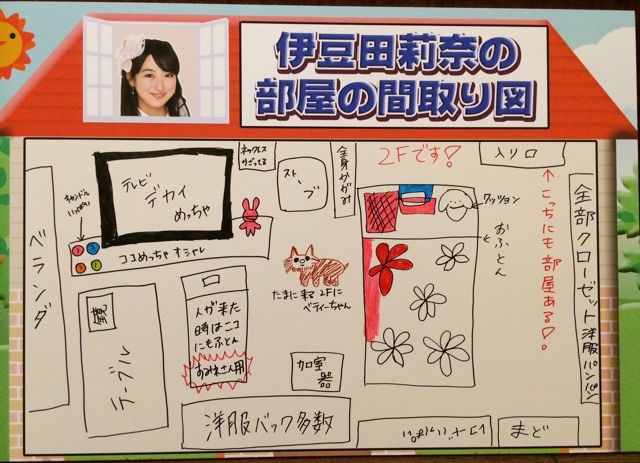 伊豆田莉奈の
部屋の間取り図
ネックレス
かざってる
ストーブ
全身かがみ
2Fです!
入り口
↑こっちにも部屋ある!
全部クローゼット洋服パンパン
キャンドル
いっぱい
テレビ
デカイ
めっちゃ
ココめっちゃオシャレ
ベランダ
クッション
おふとん
たまに来る2Fに
ベティーちゃん
人が来た
時はココ
にもふとん
すみれさん用
鏡
テーブル
加室
器
洋服バック多数
まど